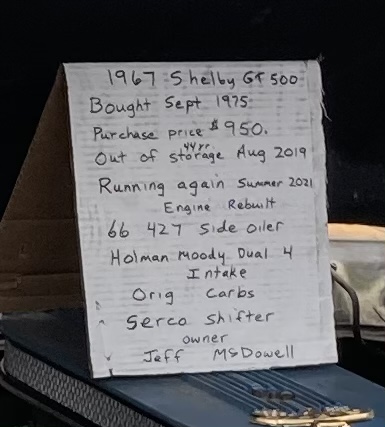 1967 Shelby GT 500
Bought Sept 1975
Purchase price $950.
Out of 44 yr. storage Aug 2019
Running again Summer 2021
Engine Rebuilt
66 427 side oiler
Holman Moody Dual 4
Intake
Orig Carbs
Serco Shifter
owner
Jeff McDowell